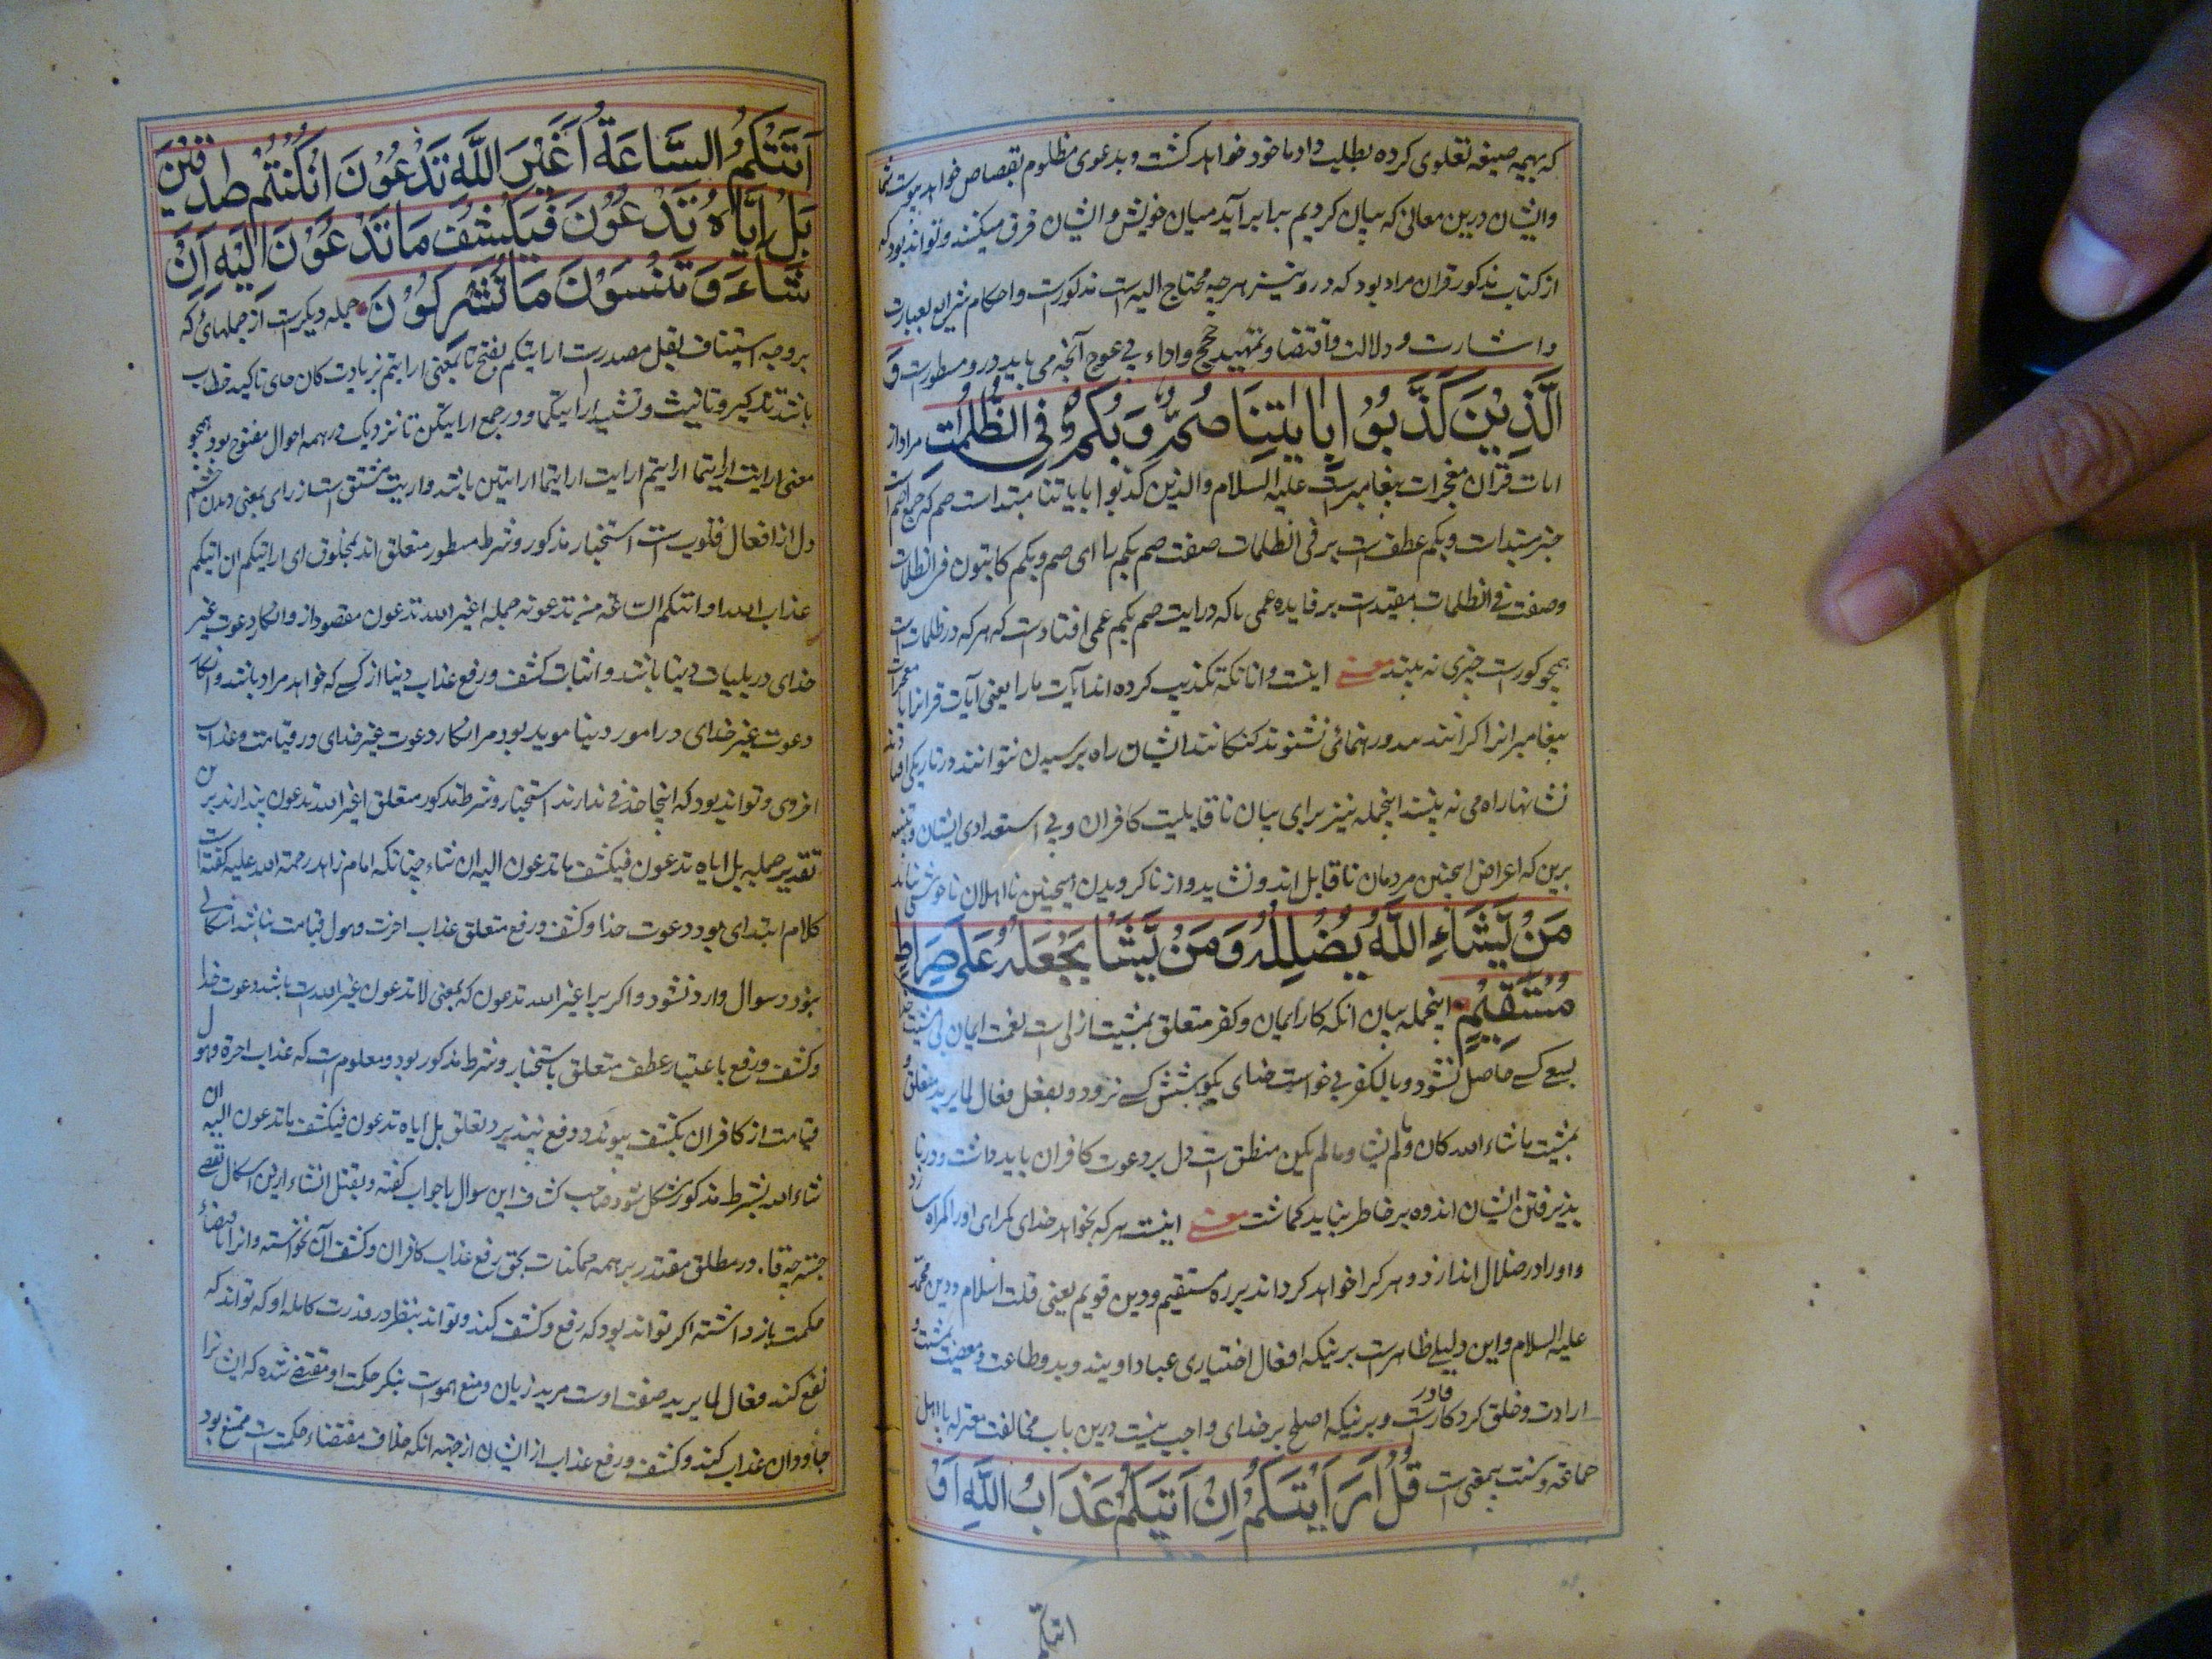 که بهیمه صیغه تغلوی کرده بطلیت داد ماخود خواهد کشت وبدعوی مظلوم بقصاص خواهد
وایشان درین معانی که بیان کردیم برابر آید میان خویش وایشان فرق میکنند وتواند بود که
از کتاب مذکور قران مراد بود که درو نیز هرچه محتاج الیه است مذکورست واحکام شرایع بعبارت
واشارت ودلالت واقتضا وتمهید حجج واداء بی عوج آنچه می باید درو مسطورست وَ
الَّذِيْنَ كَذَّبُوْا بِاٰيٰتِنَا صُمٌّ وَّبُكْمٌ فِي الظُّلُمٰتِ مراد از
ایات قران معجزات پیغامبرست علیه السلام والذین کذبوا بایاتنا مبتداست صم که جمع اصم است
خبر مبتداست وبکم عطف است بر فی الظلمات صفت صم بکم یا ای صم وبکم کاینون فی الظلمات
وصفت فی الظلمات مفیدست بر فایده عمی باکه درایت صم بکم عمی افتادست که هرکه در ظلمات است
همچو کورست چیزی نه بیند معنی اینست وانانکه تکذیب کرده اند آیات مارا یعنی آیات قرانرا یا معجزات
پیغامبرانرا کرانند مدور رهنمائی نشنوند کنکانند ایشان راه پرسیدن نتوانند در تاریکی
نشانهاراه می نه بینند اینجمله نیز برای بیان ناقابلیت کافران وبی استعدادی ایشان وتنبیه
برین که اعراض اینچنین مردمان ناقابل اند ونشاید واز ناکرویدن اینچنین نااهلان ناخوشی
مَنْ يَّشَاءِ اللّٰهُ يُضْلِلْهُ وَمَنْ يَّشَأْ يَجْعَلْهُ عَلٰى صِرَاطٍ
مُّسْتَقِيْمٍ اینجمله بیان انکه کار ایمان وکفر متعلق بمشیت ازلی است نعمت ایمان بی مشیت
بسعی کسی حاصل نشود وبالکفر بی خواست خدای بکوشش کسی نرود وبفعل فعال لما یرید متعلق
بمشیت ماشاء الله کان ومالم یشا ومالم یکن منطق است دل بر دعوت کافران باید داشت ودرنا
پذیرفتن ایشان اندوه بر خاطر نباید کماشت معنی اینست هرکه بخواهد خدای کمراهی اورا کمراه
واورا در ضلال اندازد وهرکرا خواهد کرداند بر ره مستقیم ودین قویم یعنی ملت اسلام ودین محمد
علیه السلام واین دلیلی ظاهرست برینکه افعال اختیاری عباد اوبند وبد وطاعت ومعصیت بمشیت و
ارادت وخلق کردکار قادرست وبرینکه اصلح بر خدای واجب نیست درین باب مخالفت معتزله با اهل
جماعة وسنت بیمعنی است قُلْ اَرَءَيْتَكُمْ اِنْ اَتٰىكُمْ عَذَابُ اللّٰهِ اَوْ
اتتکم
اَتَتْكُمُ السَّاعَةُ اَغَيْرَ اللّٰهِ تَدْعُوْنَ اِنْ كُنْتُمْ صٰدِقِيْنَ
بَلْ اِيَّاهُ تَدْعُوْنَ فَيَكْشِفُ مَا تَدْعُوْنَ اِلَيْهِ اِنْ
شَاءَ وَتَنْسَوْنَ مَا تُشْرِكُوْنَ جمله دیکرست از جملهائی که
بروجه استیناف بقل مصدرست ارایتکم بفتح تا بمعنی ارایتم بزیادت کان حای تاکید خطاب
باشد تذکیر وتانیث وتشیه ارایتکما ودر جمع ارایتکن تا نزدیک در همه احوال مفتوح بود همچو
معنی ارایت ارایتما ارایتم ارایت ارایتما ارایتن باشد وارایت مشتق است از رای بمعنی دیدن چشم
دل از افعال قلوب است استخبار مذکور وشرط مسطور متعلق اند بمحذوف ای ارایتکم ان اتیکم
عذاب الله او اتتکم الساعة من تدعونه جمله اغیر الله تدعون مقصود از وانکار دعوت غیر
خدای در بلیات دنیا باشد واثبات کشف ورفع عذاب دنیا از کسی که خواهد مراد باشد وانکار
دعوت غیر خدای در امور دنیا موید بود مر انکار دعوت غیر خدای در قیامت وعذاب
اخروی وتواند بود که اینجا حذفی ندارند استخبار وشرط مذکور متعلق اغیر الله تدعون پندارند برین
تقدیر جمله بل ایاه تدعون فیکشف ما تدعون الیه ان شاء چنانکه امام زاهد رحمة الله علیه کفته است
کلام ابتدای بود دعوت خدا وکشف ورفع متعلق عذاب اخرت وهول قیامت نباشد اشکالی
نبود وسوال وارد نشود واکر بر اغیر الله تدعون که بمعنی لاتدعون غیر الله است باشد دعوت خدا
وکشف ورفع باعتبار عطف متعلق باستخبار وشرط مذکور بود ومعلوم است که عذاب اخرة وهول
قیامت از کافران بکشف نپیوندد ودفع نپذیرد وتعلق بل ایاه تدعون فیکشف ما تدعون الیه ان
شاء الله بشرط مذکور مشکل شود صاحب کشاف این سوال باجواب کفته وبقتل انشاء ازین اشکال تفصی
جسته چه قادر مطلق مقتدر بر همه ممکنات بحق رفع عذاب کافران وکشف آن نخواسته وانرا باقتضاء
حکمت باز داشته اکر تواند بود که رفع وکشف کند وتواند بنظر در قدرت کامله او که تواند که
نفع کند فعال لما یرید صفت اوست مرید زیان ومنع هموست بنکر حکمت او مقتضی شده که این نرا
جاودان عذاب کند وکشف ورفع عذاب از ایشان از جهة انکه خلاف مقتضاء حکمت است ممتنع بود